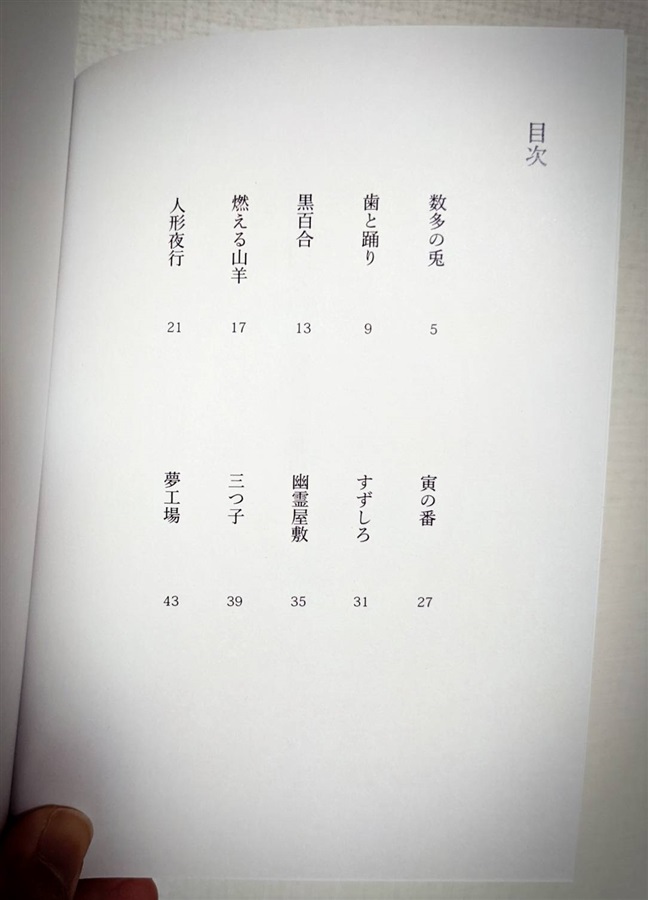 目次
数多の兎
5
歯と踊り
9
黒百合
13
燃える山羊
17
人形夜行
21
寅の番
27
すずしろ
31
幽霊屋敷
35
三つ子
39
夢工場
43